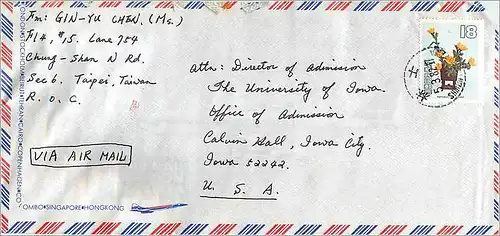 Fm: GIN-YU CHEN. (Ms.)
Fl 4, #15. Lane 754
Chung-Shan N Rd.
Sec 6. Taipei, Taiwan
R. O. C.
VIA AIR MAIL
Attn: Director of Admission
The University of Iowa.
Office of Admission
Calvin Hall, Iowa City.
Iowa 52242.
U. S. A.
18
LONDON•STOCKHOLM•BERLIN•TEHRAN•CAIRO•COPENHAGEN•CO
OMBO•SINGAPORE•HONGKONG